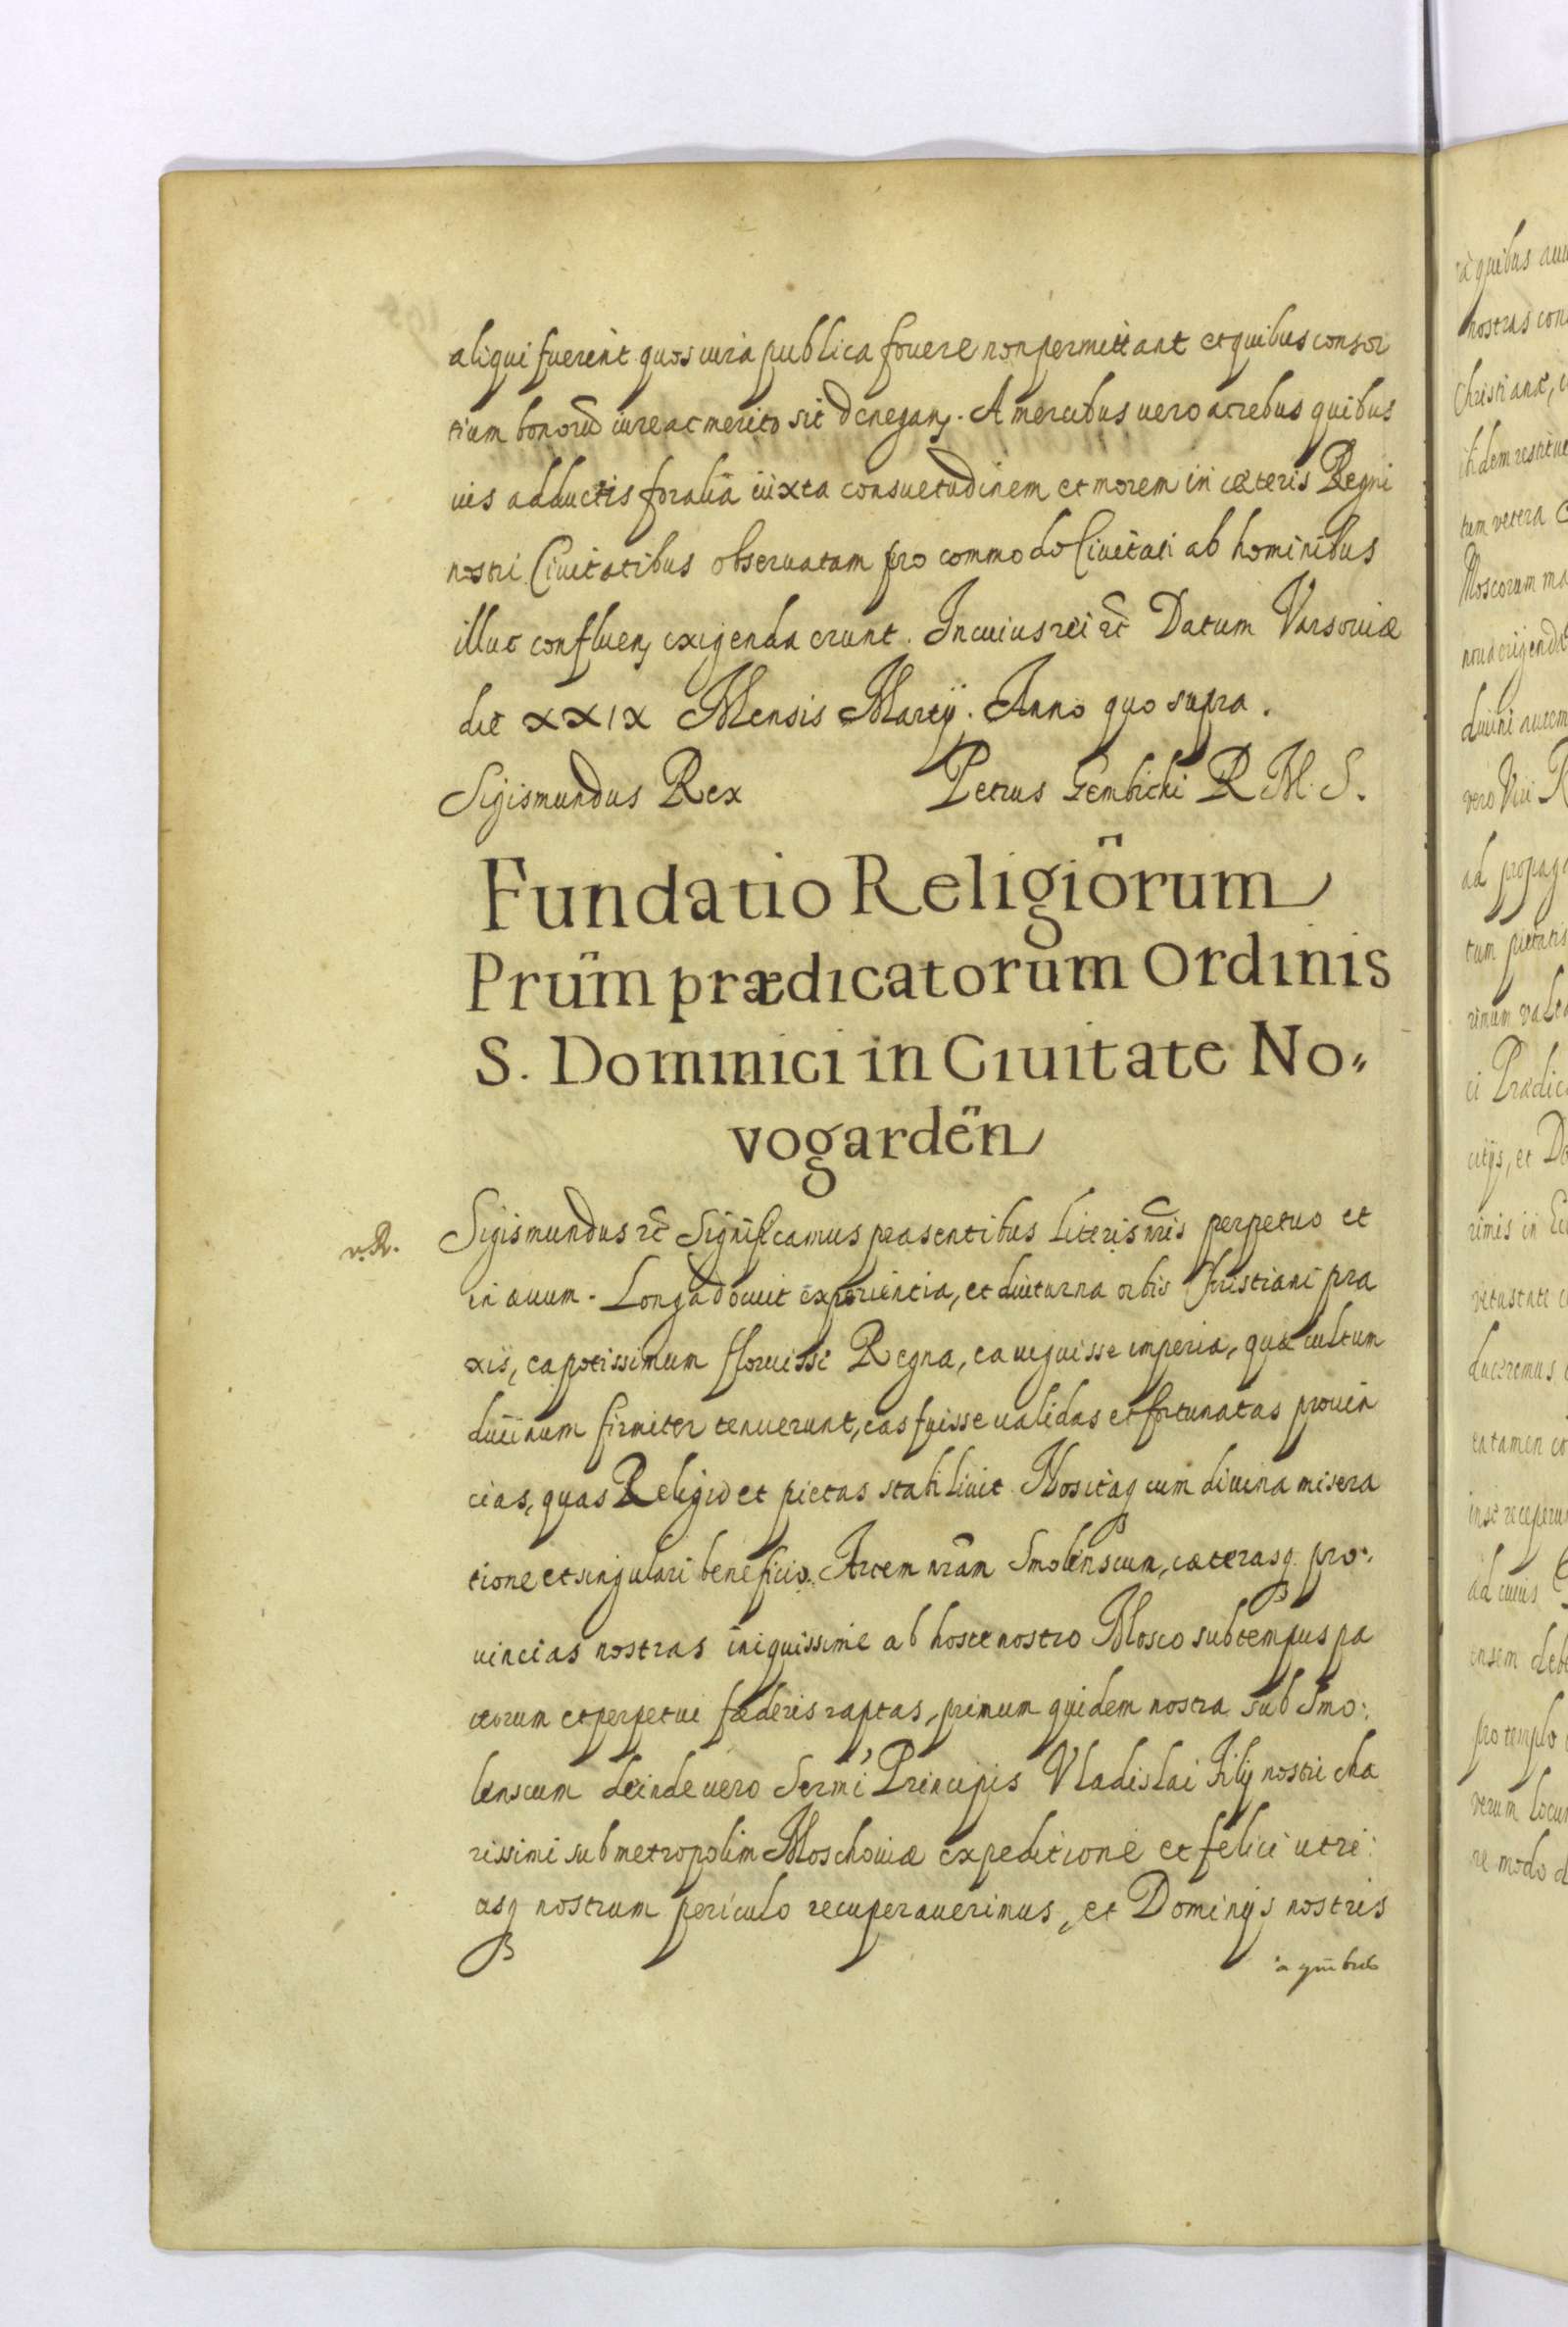 aliqui fuerint quos iura publica fovere non permittant et quibus consor
tium bonorū iure ac merito sit denegan. A mercibus uero ac rebus quibus
uis adductis foralia iuxta consuetudinem et morem in cæteris Regni
nostri Ciuitatibus obseruatam pro commodo Ciuitati ab hominibus
illuc confluen exigenda erunt. In cuius rei etc Datum Varsouiæ
die XXIX Mensis Martij. Anno quo supra.
Sigismundus Rex Petrus Gembicki R. M. S.
Fundatio Religiörum
Prüm prædicatorum Ordinis
S. Dominici in Ciuitate No=
vogardën
v.R.
Sigismundus etc Significamus præsentibus literis nris perpetuo et
in æuum. Longa docuit experientia, et diuturna orbis Christiani pra
xis, ea potissimum floruisse Regna, ea uiguisse imperia, quæ cultum
diuinum firmiter tenuerunt, eas fuisse ualidas et fortunatas prouin
cias, quas Religio et pietas stabiliuit. Nos itaq cum diuina misera
tione et singulari beneficio Arcem nram Smolenscum, cæterasq pro:
uincias nostras iniquissime ab hoste nostro Mosco sub tempus pa
ctorum et perpetui fæderis raptas, primum quidem nostra sub Smo:
lenscum deinde uero Sermi Principis Vladislai Filij nostri cha
rissimi sub metropolim Moschouiæ expeditione et felici utri:
usq nostrum periculo recuperauerimus, et Dominijs nostris
a quibus